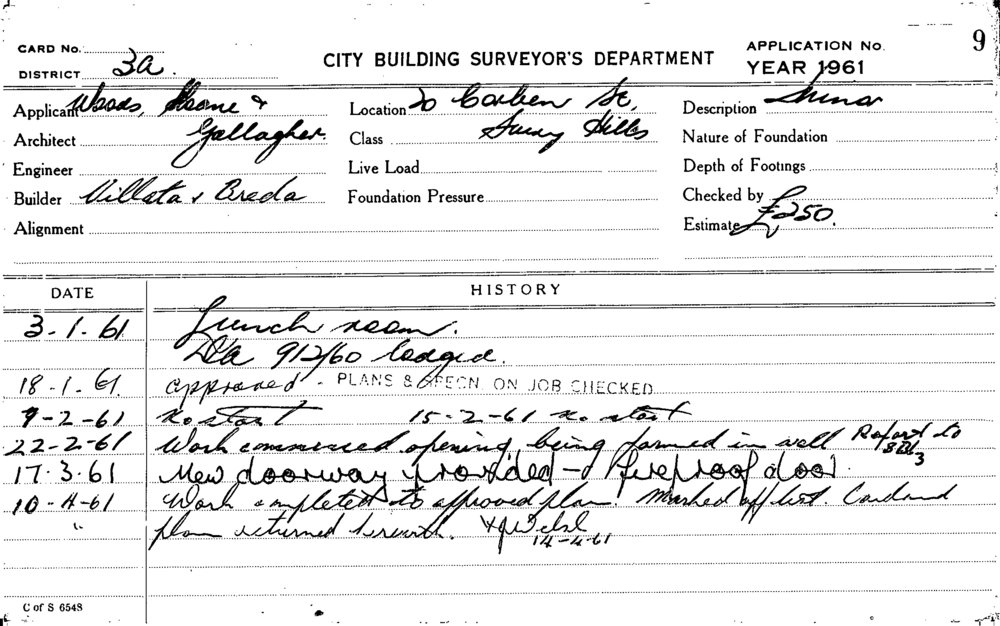 CARD No.
DISTRICT 3a.
CITY BUILDING SURVEYOR'S DEPARTMENT
APPLICATION No. 9
YEAR 1961
Applicant Woods, &
Gallagher.
Architect
Engineer
Builder Villata & Breda
Alignment
Location 20 Corben St,
Surry Hills
Class
Live Load
Foundation Pressure
Description Minor
Nature of Foundation
Depth of Footings
Checked by
Estimate £250.
DATE HISTORY
3.1.61 Lunch room.
D/a 912/60 lodged.
18.1.61. approved - PLANS & SPECN. ON JOB CHECKED
9-2-61 No start 15-2-61 No start
22-2-61 Work commenced opening being formed in wall Report to
17.3.61 New doorway provided - fireproof door.
10-4-61 Work completed to approved plan. Marked off list. Card and
" plan returned herewith.
14-4-61
C of S 6548